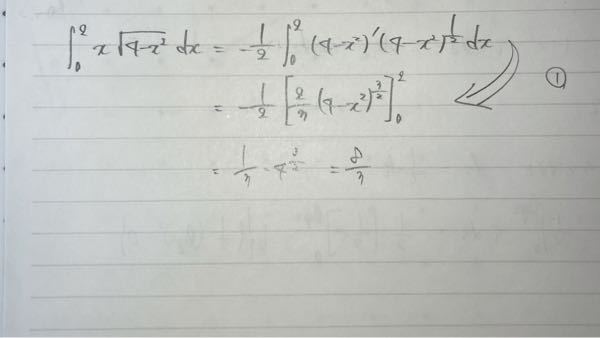 ∫₀² x√(4-x²) dx = -1/2 ∫₀² (4-x²)'(4-x²)^(1/2) dx
= -1/2 [2/3 (4-x²)^(3/2)]₀² ①
= 1/3 · 4^(3/2) = 8/3